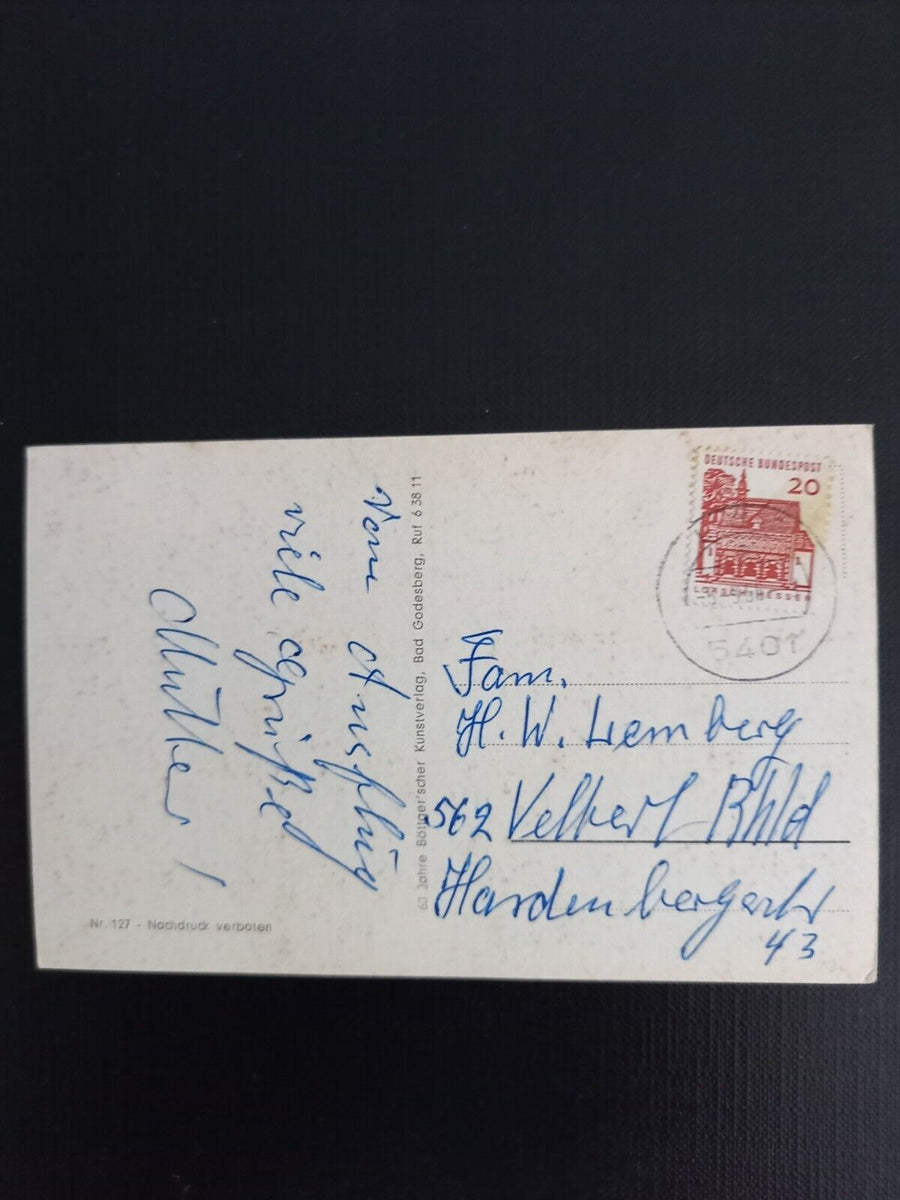 Vom Ausflug
viele Grüße
Mutter!
Nr. 127 - Nachdruck verboten
60 Jahre Böttger'scher Kunstverlag, Bad Godesberg, Ruf 6 38 11
DEUTSCHE BUNDESPOST
20
LORSCH/HESSEN
5401
Fam.
H. W. Lemberg
562 Velbert Rhld
Hardenbergerstr
43